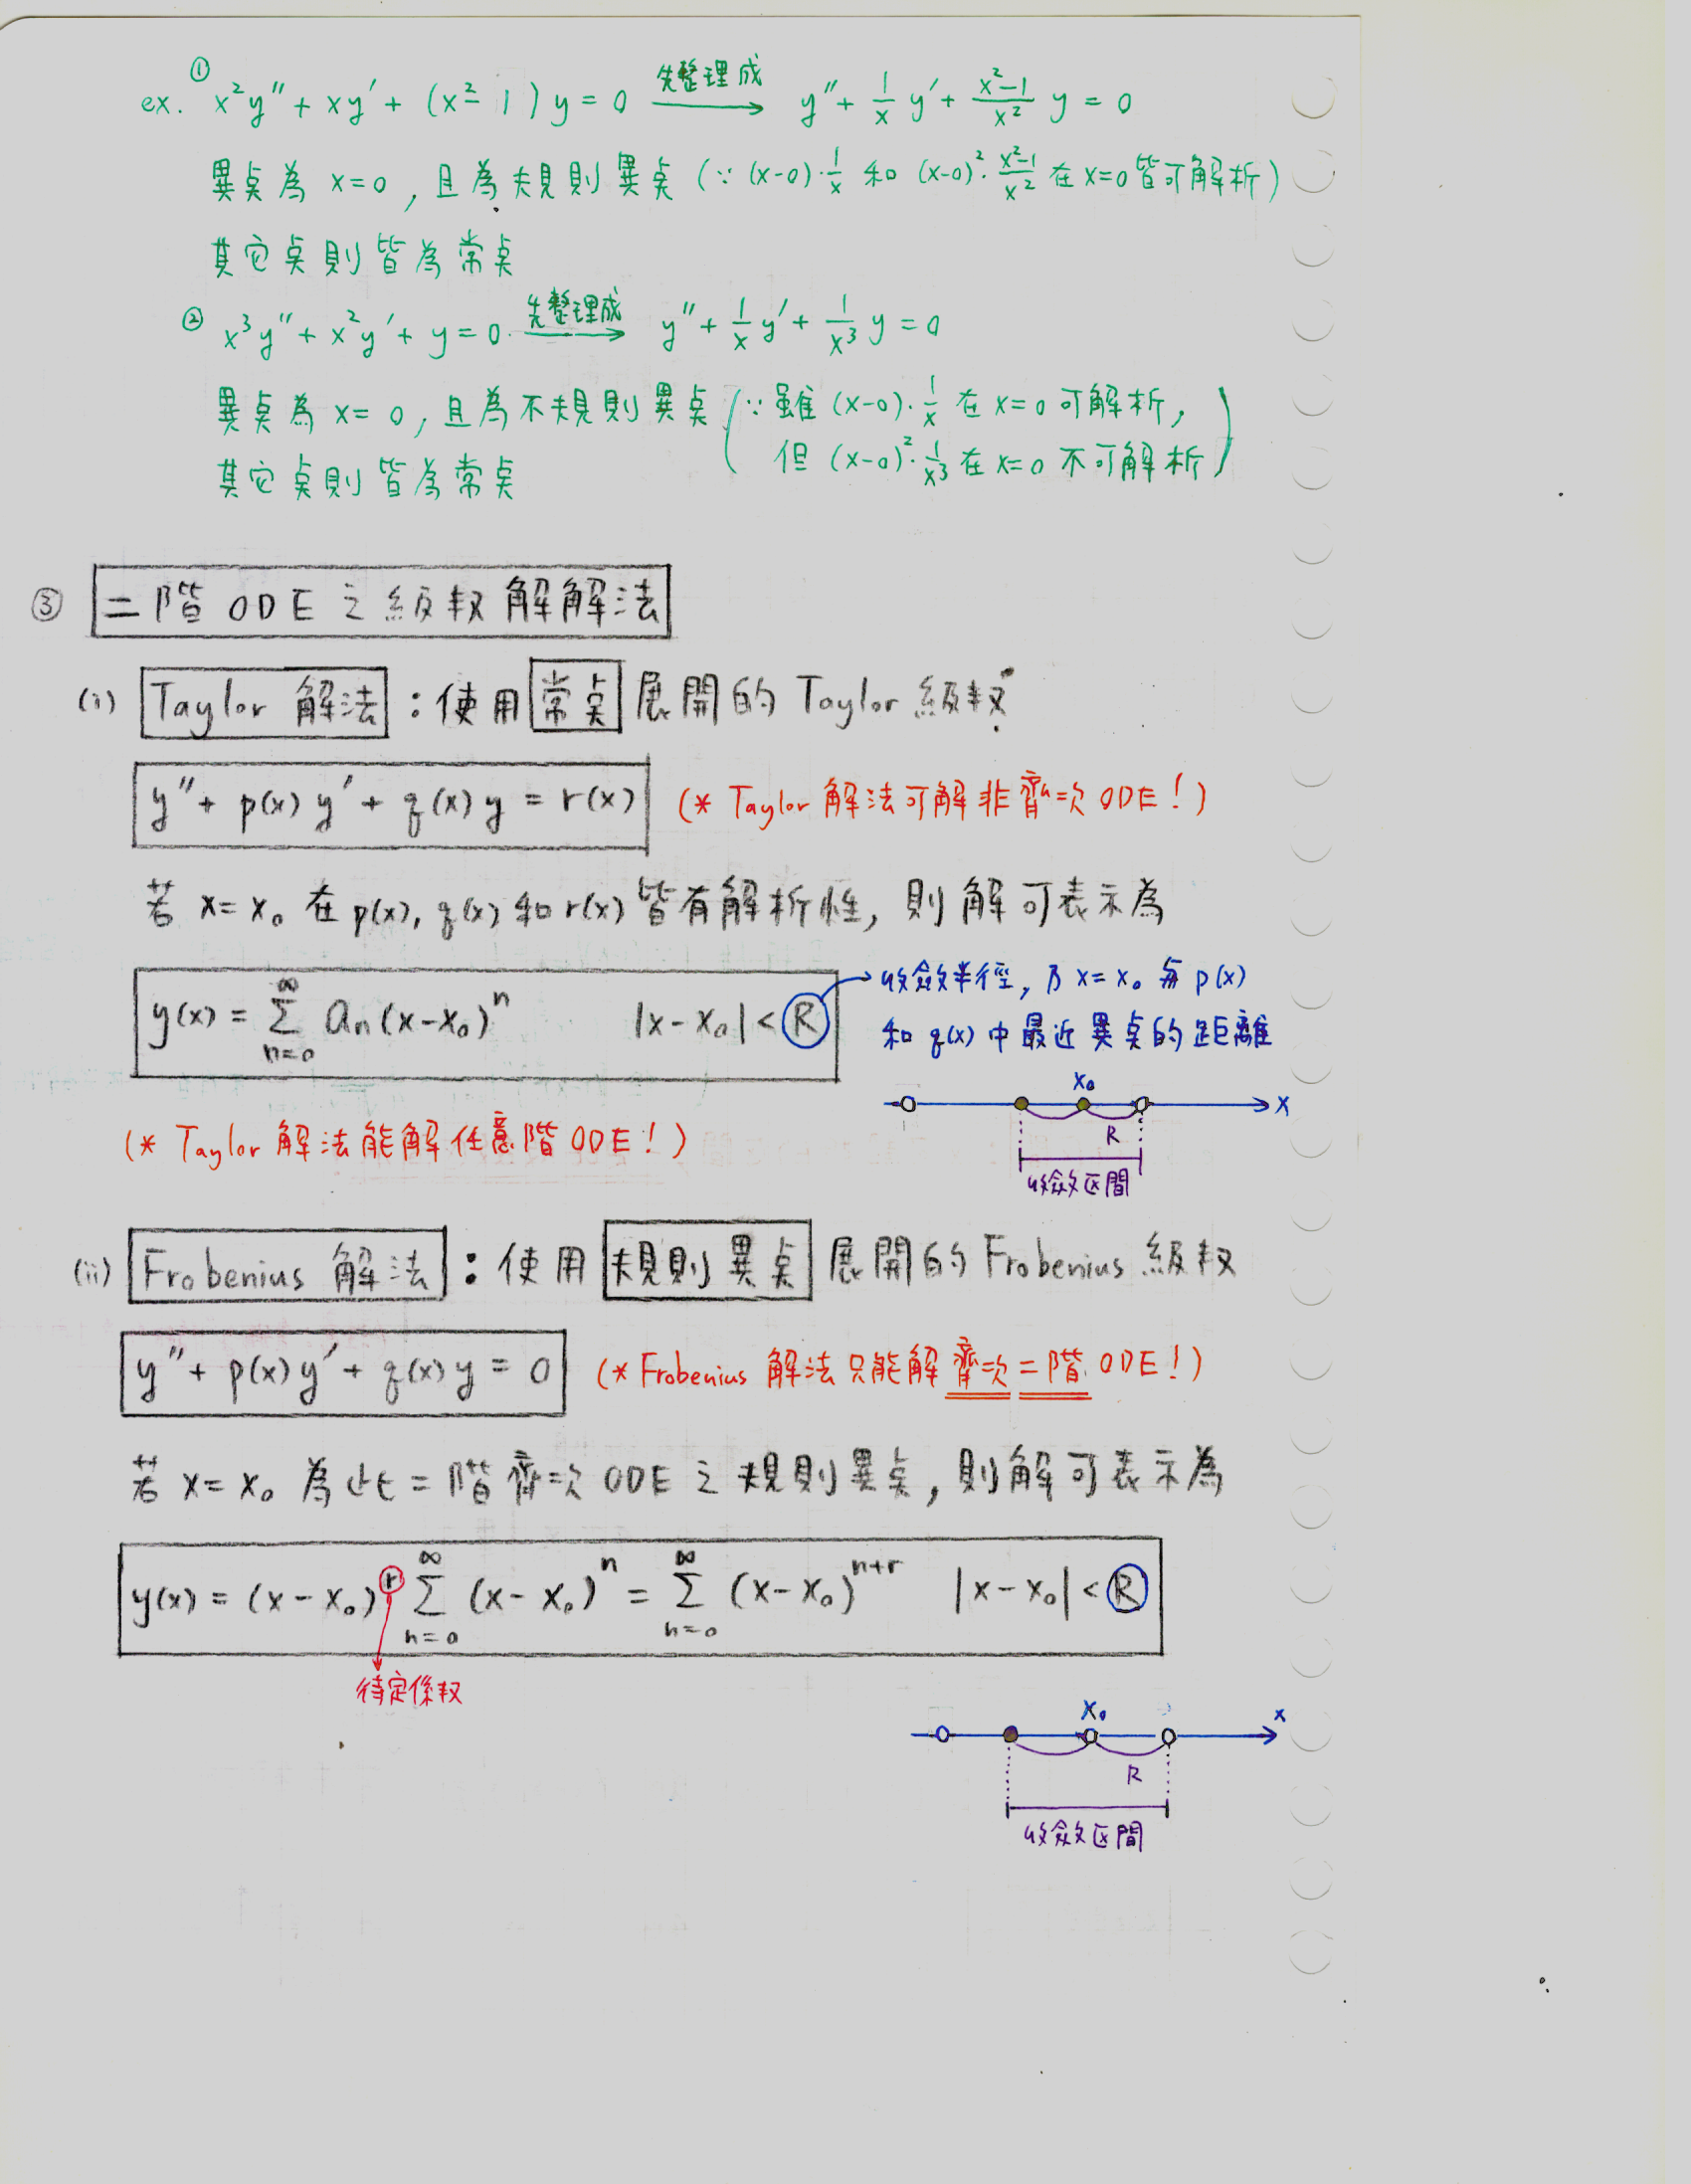 ex. ① x²y″ + xy′ + (x²-1)y = 0 先整理成→ y″ + 1/x y′ + (x²-1)/x² y = 0
異点為 x=0, 且為規則異点 (∵ (x-0)·1/x 和 (x-0)²·(x²-1)/x² 在 x=0 皆可解析)
其它点則皆為常点
② x³y″ + x²y′ + y = 0 先整理成→ y″ + 1/x y′ + 1/x³ y = 0
異点為 x=0, 且為不規則異点 (∵ 雖 (x-0)·1/x 在 x=0 可解析,
但 (x-0)²·1/x³ 在 x=0 不可解析)
其它点則皆為常点
③ 二階 ODE 之級数解解法
(i) Taylor 解法 : 使用常点展開的 Taylor 級数
y″ + p(x)y′ + q(x)y = r(x) (* Taylor 解法可解非齊次 ODE!)
若 x=x₀ 在 p(x), q(x) 和 r(x) 皆有解析性, 則解可表示為
y(x) = ∑_{n=0}^{∞} aₙ(x-x₀)ⁿ |x-x₀| < R → 收斂半徑, 乃 x=x₀ 與 p(x)
和 q(x) 中最近異点的距離
x₀
x
R
收斂区間
(* Taylor 解法能解任意階 ODE!)
(ii) Frobenius 解法 : 使用規則異点展開的 Frobenius 級数
y″ + p(x)y′ + q(x)y = 0 (* Frobenius 解法只能解齊次二階 ODE!)
若 x=x₀ 為此二階齊次 ODE 之規則異点, 則解可表示為
y(x) = (x-x₀)^r ∑_{n=0}^{∞} (x-x₀)ⁿ = ∑_{n=0}^{∞} (x-x₀)^{n+r} |x-x₀| < R
待定係数
x₀
x
R
收斂区間